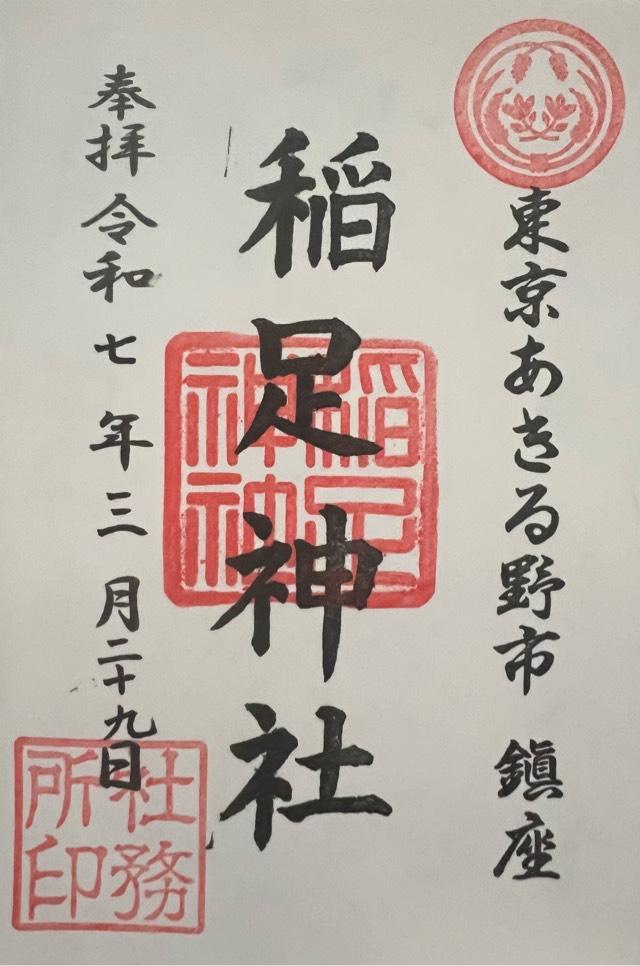 東京あきる野市 鎮座
稲足神社
奉拝 令和七年三月二十九日
稲足
神社
社務
所印